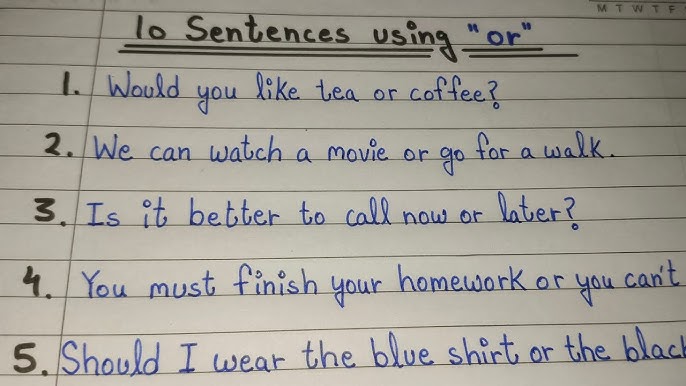 M T W T F
10 Sentences using "or"
1. Would you like tea or coffee?
2. We can watch a movie or go for a walk.
3. Is it better to call now or later?
4. You must finish your homework or you can't
5. Should I wear the blue shirt or the